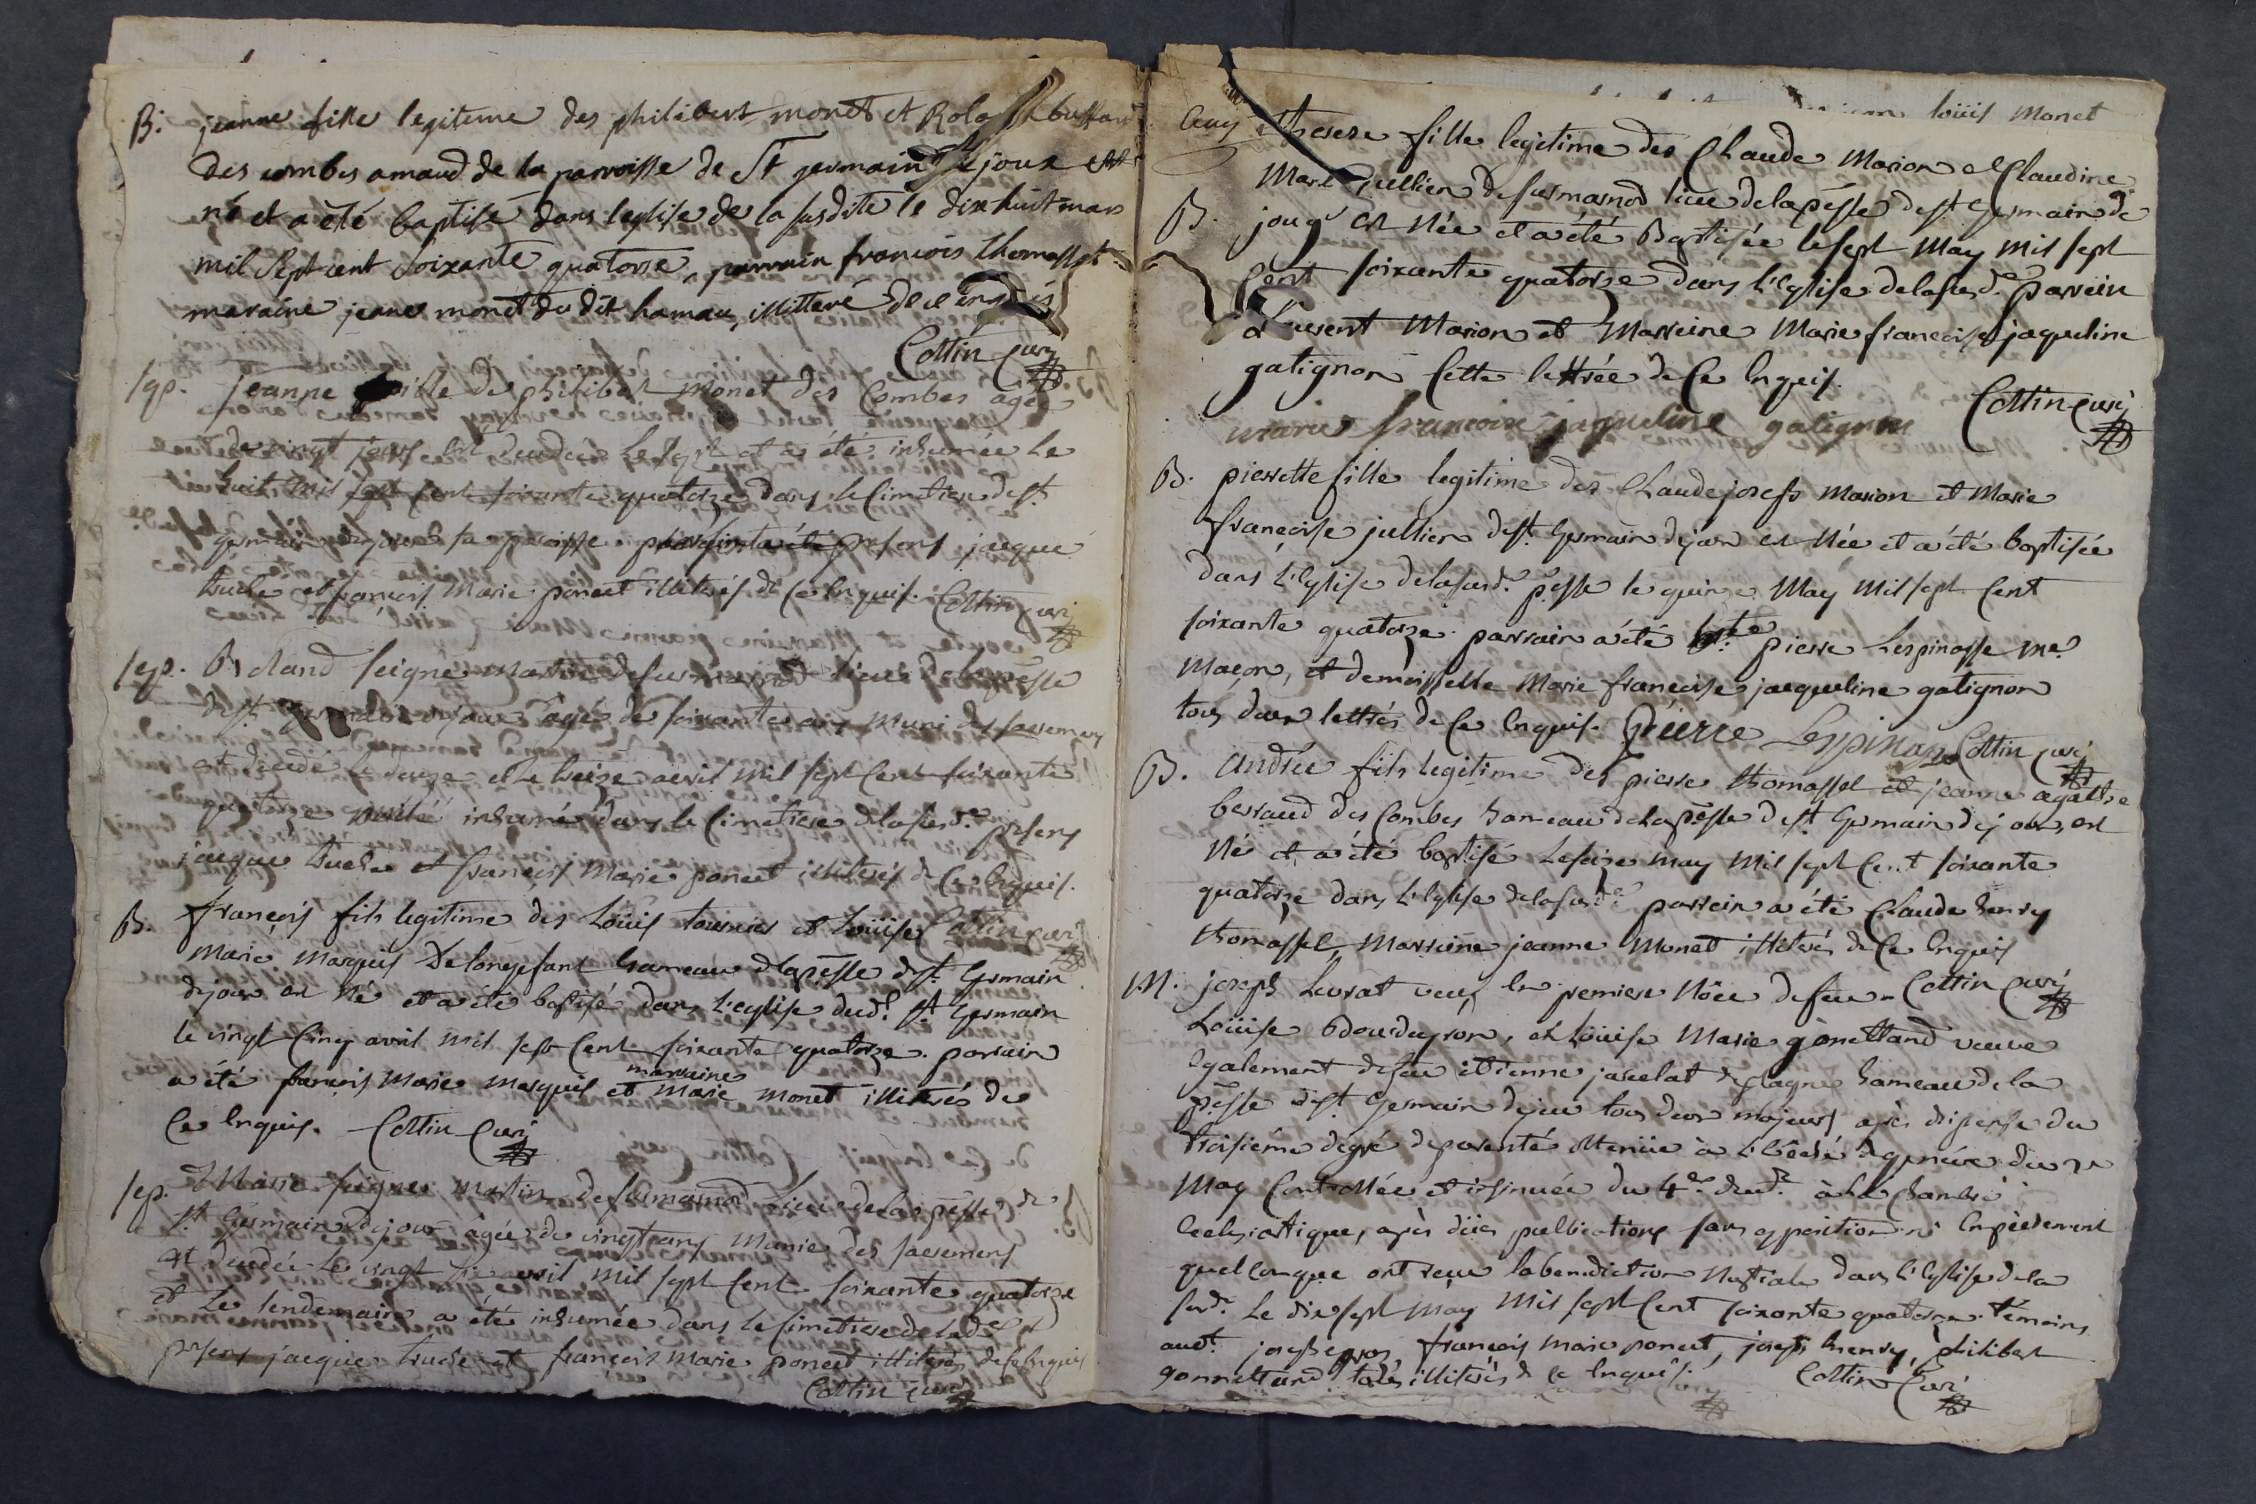 B. jeanne fille legiteme des philibert monet et
des combes arnaud de la parroisse de St germain de joux est
né et a été baptisé dans leglise de la susdite le dix huit mars
mil sept cent soixante quatorse, parrain francois thomasset
maraine jeane monet du dit hamau, illitteré de ce enquis
Cottin curé
sep. jeanne fille de philibert monet des Combes agée
de vingt jours est decedée le sept et a été inhumée le
huit mil sept cent soixante quatorze dans le Cimetiere de st
germain dejoux sa paroisse presens jacque
truche et francois Marie poncet illiterés de Ce Enquis. Cottin curé
sep. Rolland seigne martin de surmarnod lieu de la pesse
de st germain dejoux agé de soixante ans muni des sacremens
est decedé le douze et le treize avril mil sept Cent soixante
quatorze a été inhumé dans le Cimetiere de la susd.e presens
jacque truche et francois Marie poncet illiterés de Ce Enquis.
B. francois fils legitime des Loüis tournier et Loüise Cottin curé
Marie Marquis De longefant hameau de la pesse de st Germain
dejoux est Né et a été baptisé dans l'eglise dud.t st Germain
le vingt Cinq avril mil sept Cent soixante quatorze. parrain
a été francois Marie Marquis et marraine Marie monet illiterés de
Ce Enquis. Cottin Curé
sep. Marie seigne Martin de surmarnod Lieu de la pesse de
st Germain dejoux âgée de vingt ans Munie des sacremens
est decedée le vingt avril mil sept Cent soixante quatorze
et le lendemain a été inhumée dans le Cimetiere de lad.e
presens jacque truche et francois Marie poncet illiterés de Ce Enquis
Cottin curé
loüis Monet
therese fille legitime des Claude Marion et Claudine
Marie jullien de surmarnod lieu de la pesse de st Germain de
B. joux est Née et a été Baptisée le sept May mil sept
Cent soixante quatorze dans L'Eglise de la susd.e parrein
Laurent Marion et Marreine Marie francoise jaqueline
gatignon Cette lettrée de Ce Enquis.
Cottin curé
marie francoise jaqueline gatignon
B. pierrette fille legitime des Claude joseph Marion et Marie
francoise jullien de st Germain dejoux est Née et a été baptisée
dans L'Eglise de la susd.e pesse le quinze May Mil sept Cent
soixante quatorze parrain a été pierre Lespinasse me
Maçon, et demoiselle Marie francoise jacqueline gatignon
tous deux lettrés de Ce Enquis. Piierre Lespinasse Cottin curé
B. André fils legitime des pierre thomasset et jeanne agathe
berraud des Combes hameau de la pesse de st Germain dejoux, est
Né et a été baptisé le seize may Mil sept Cent soixante
quatorze dans L'Eglise de la susd.e parrein a été Claude henry
thomasset, Marreine jeanne Monet illiterés de Ce Enquis
M. joseph Levrat veuf en premiere Nôce de feue Cottin Curé
Loüise Bdourdeyron, et Loüise Marie gonettand veuve
Egalement de feu etienne javelat hameau de la
pesse de st Germain dejoux tous deux majeurs après dispense du
troisiéme degré de parenté obtenüe à L'Evêché de genéve du 2e
May Controllée et insinuée du 4.e dud.t à La Chambre
Ecclesiastique, après düës publications sans opposition ni Empêchement
quelconque ont reçu la benediction Nuptiale dans L'Eglise de la
susd.e le dix sept May Mil sept Cent soixante quatorze témoins
aud.t joseph gros, francois marie poncet, joseph henry, philibert
gonnettand tous illiterés de Ce Enquis. Cottin Curé